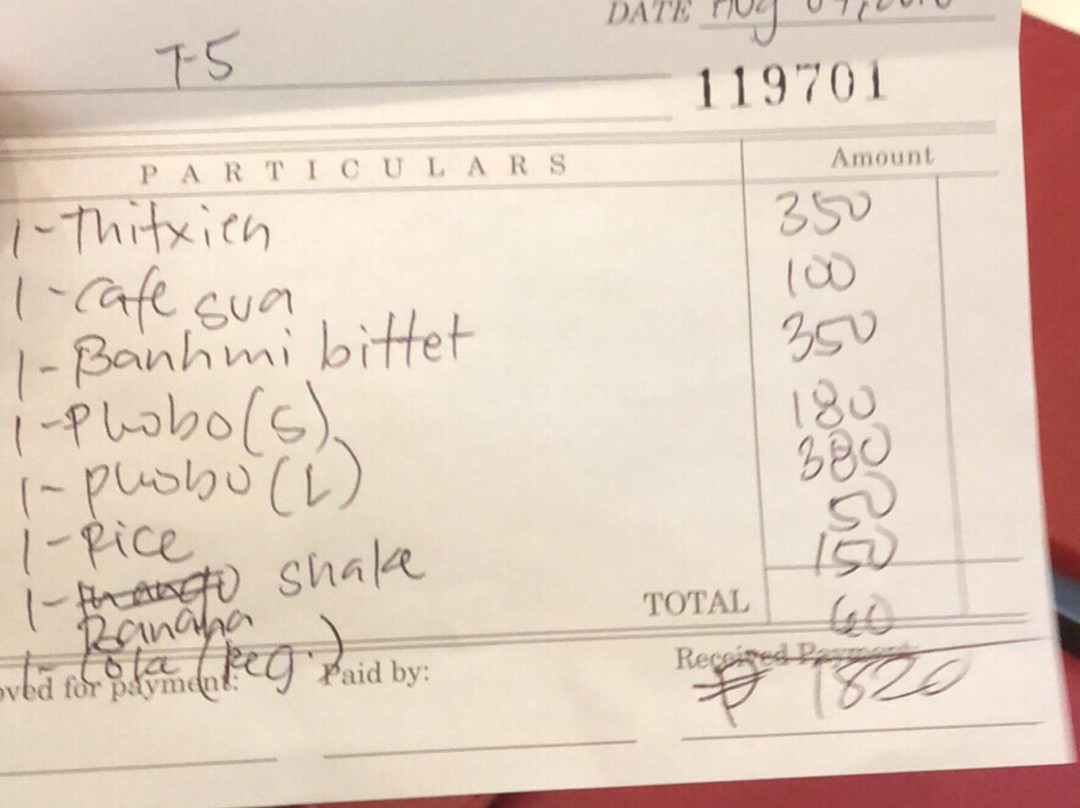 DATE Aug
T-5
119701
PARTICULARS Amount
1-Thitxien 350
1-cafe sua 100
1-Banhmi bittet 350
1-Phobo(S) 180
1-phobo(L) 380
1-Rice 50
1-mango shake 150
Banana
TOTAL 60
1-Cola (Reg.)
oved for payment: Paid by: Received Payment
₱ 1820